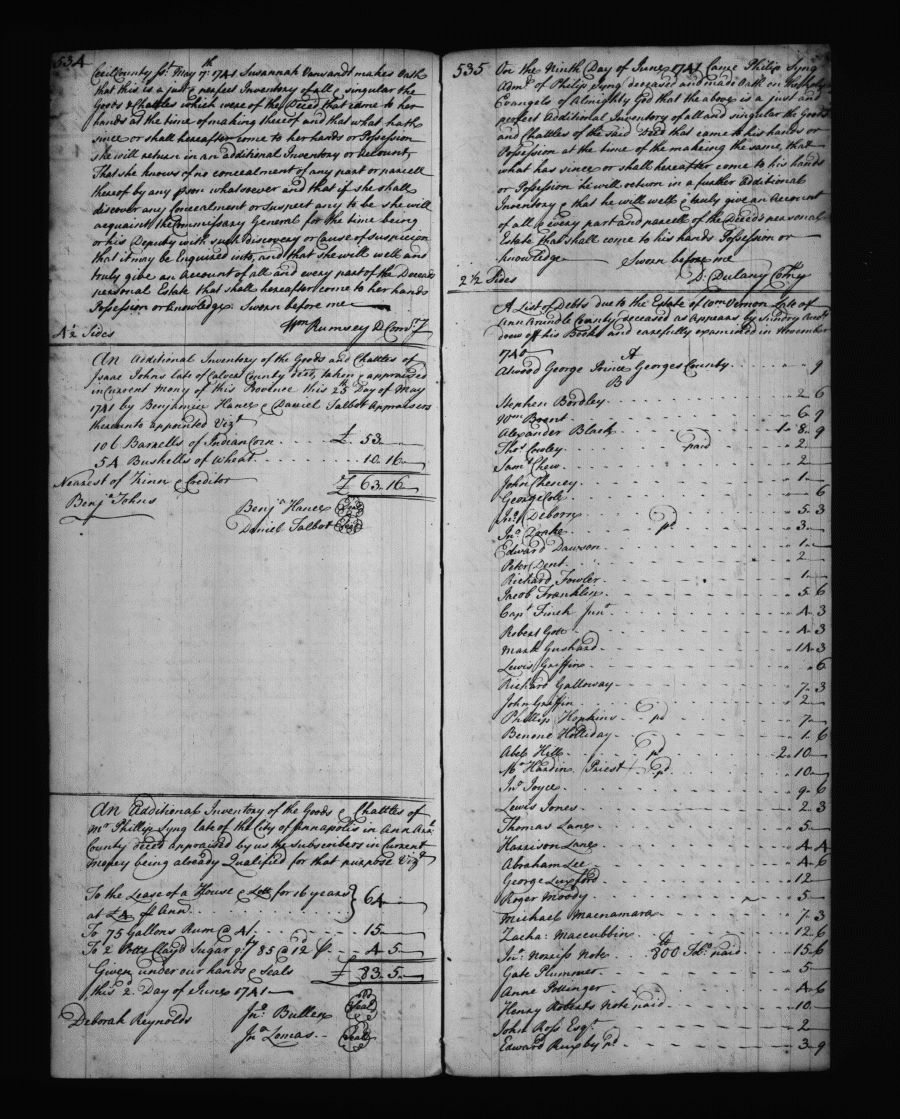 534
Cecil County ss. May 7th 1741 Susannah Vansandt makes Oath
that this is a just & perfect Inventory of all & singular the
Goods & Chattles which were of the Deced that came to her
hands at the time of making thereof and that what hath
since or shall hereafter come to her hands or Possession
she will return in an additional Inventory or Account
That she knows of no concealment of any part or parcell
thereof by any pson whatsoever and that if she shall
discover any Concealment or suspect any to be she will
acquaint the Commissary General for the time being
or his Deputy with such discovery or Cause of suspicion
that it may be Enquired into, and that she will well and
truly give an Account of all and every part of the Deceds
personal Estate that shall hereafter come to her hands
Possession or knowledge Sworn before me
Wm Rumsey D Comry
4½ Sides
An Additional Inventory of the Goods and Chattles of
Isaac Johns late of Calvert County deced, taken & appraised
in Current mony of this Province this 25th Day of May
1741 by Benjamin Hance & Daniel Talbot Appraisers
thereunto appointed Vizt
106 Barrells of Indian Corn £ 53
54 Bushells of Wheat 10. 16
Nearest of Kinn & Creditor £ 63. 16
Benja Johns
Benja Hance Seal
Daniel Talbot Seal
An Additional Inventory of the Goods & Chattles of
Mr Phillip Syng late of the City of Annapolis in Ann Arl
County deced appraised by us the subscribers in Current
money being already Qualified for that purpose Vizt
To the Lease of a House & Lott for 16 years
at £4 p Ann 64
To 75 Gallons Rum @ 4/ 15
To 2 Potts Clayd Sugar qt 85 @ 12d p 4. 5
Given under our hands & Seals £ 83. 5
this 2d Day of June 1741
Deborah Reynolds Jno Bullen Seal
Jno Lomas Seal
535
On the Ninth Day of June 1741 Came Philip Syng
Admr of Philip Syng deceased and made Oath on the Holy
Evangels of Almighty God that the above is a just and
perfect Additional Inventory of all and singular the Goods
and Chattles of the said Deced that came to his hands or
Possession at the time of the makeing the same, that
what has since or shall hereafter come to his hands
or Possession he will return in a further Additional
Inventory & that he will well & truly give an Account
of all & every part and parcell of the Deceds personal
Estate that shall come to his hands Possession or
knowledge Sworn before me
2½ Sides D. Dulany Comry
A List of Debts due to the Estate of Wm Vernon Late of
Ann Arundle County deceased as Appears by Sundry Accts
drew off his Books and carefully examined in November
1740
A
Atwood George Prince Georges County 9
B
Stephen Bordley 2. 6
Wm Brent 6. 9
Alexander Black 1. 8. 9
Thos Cowley paid 2
Saml Chew 2
John Cheney 1
George Cole 6
Jno Deborx 5. 3
Jno Drake pd 3
Edward Dawson 1
Peter Dent 2
Richard Fowler 1
Jacob Franklin 5. 6
Capt Finch Junr 4. 3
Robert Gott 4. 3
Mark Gushard 14. 3
Lewis Griffin 6
Richard Galloway 7. 3
John Griffin 2
Phillip Hopkins pd 7
Benone Holliday 1. 6
Abel Hill pd 2. 10
Mr Hardin Priest pd 10
Jno Joyce 9. 6
Lewis Jones 2. 3
Thomas Lane 5
Harrison Lane 4. 4
Abraham Lee 4. 6
George Luxford 12
Roger Moody 5
Michael Macnamara 7. 3
Zacha: Maccubbin 12. 6
Jno Norriss Note 800 lb Tobo paid 15. 6
Gate Plummer 5
Anne Pottinger 4. 6
Henry Roberts Note paid 10
John Ross Esqr 2
Edward Ruxby pd 3. 9